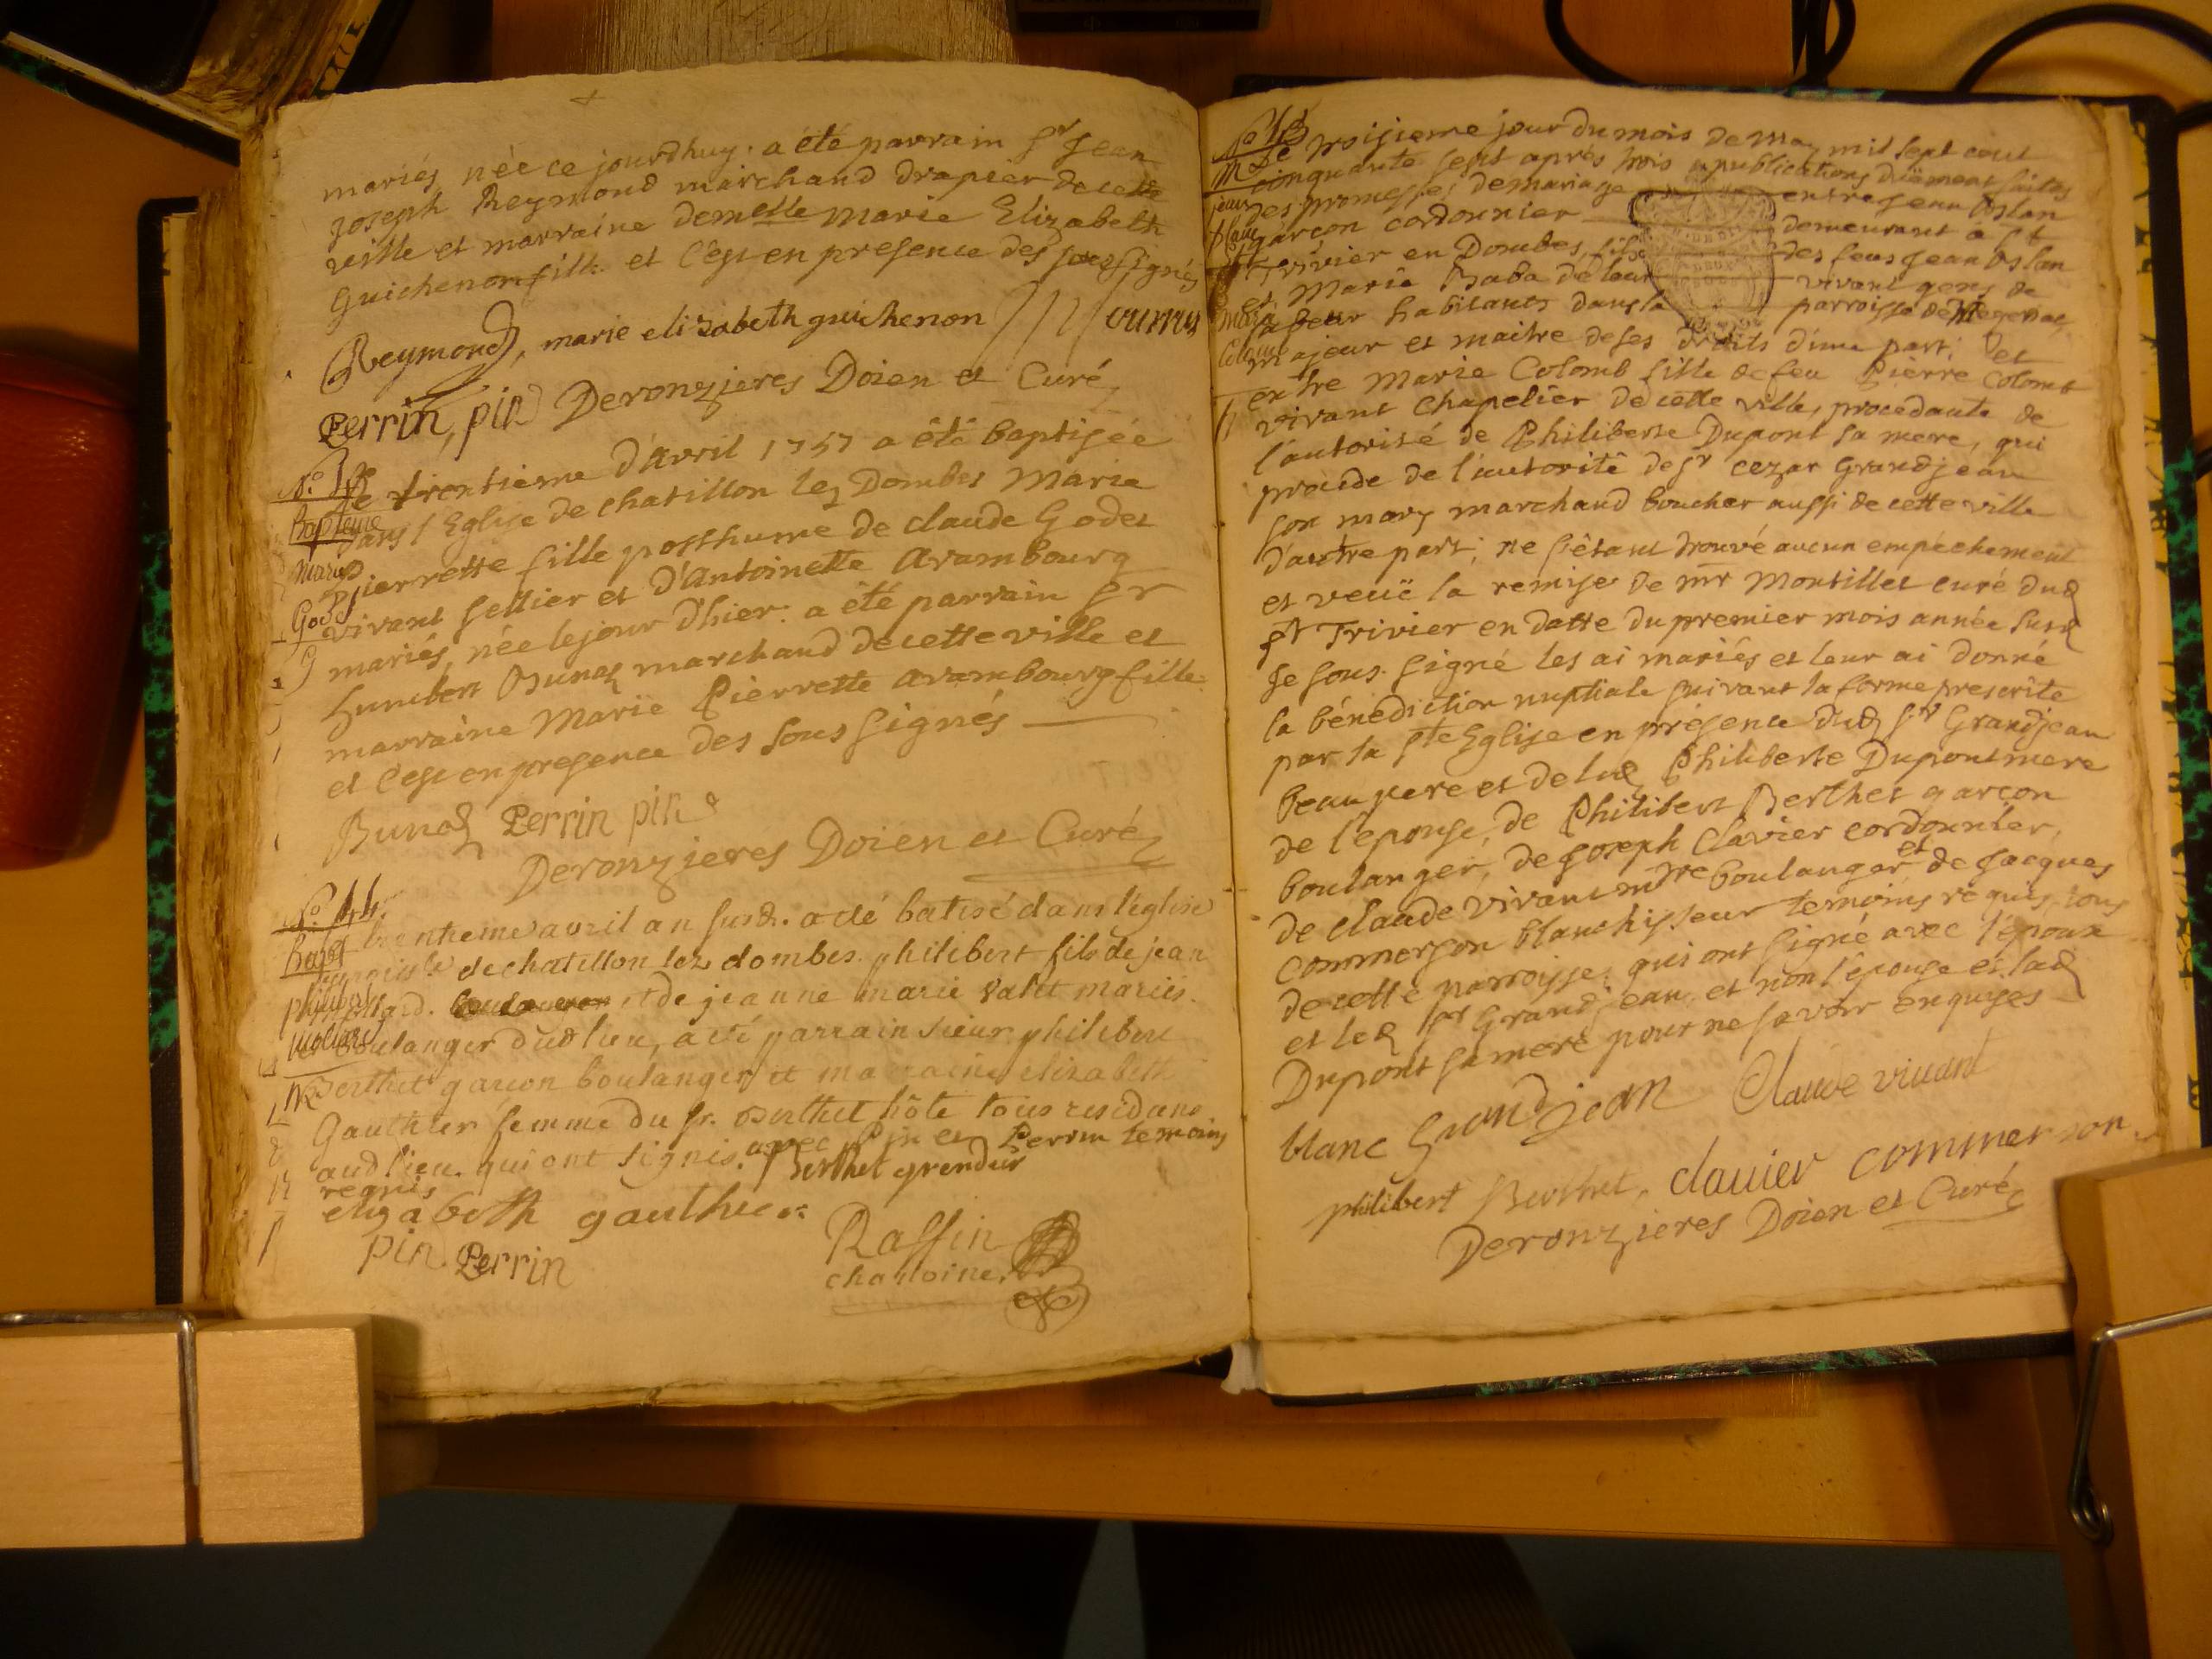 mariés, née ce jourdhuy. a été parrain Sr Jean
Joseph Reymond marchand drapier de cette
ville et marraine demelle marie Elizabeth
Guichenon fille. et c'est en presence des soussignés
Reymond, marie elizabeth guichenon
Perrin, pin Deronzieres Doien et Curé
Le trentieme d'avril 1757 a été baptisée
Baptême
dans l'Eglise de chatillon lez Dombes Marie
Marie
pierrette fille posthume de claude Godet
God
vivant sellier et d'Antoinette Arambourg
mariés, née le jour d'hier. a été parrain Sr
humbert Bunod marchand de cette ville et
marraine Marie Pierrette Arambourg fille
et c'est en presence des sous signés
Bunod Perrin pin
Deronzieres Doien et Curé
No 44
Bapt
trentieme avril an susd. a été batisé dans l'église
de chatillon lez dombes. philibert fils de jean
philibert
et de jeanne marie valet mariés.
boulanger dud lieu, a été parrain sieur philibert
Berthet garçon boulanger et marraine elizabeth
Gauthier femme du sr. Berthet hôte tous residans
aud lieu. qui ont signés. avec Pin et Perrin temoins
requis Berthet grendur
elizabeth gauthier
pin Perrin
Raffin
chanoine
Le troisieme jour du mois de may mil sept cent
cinquante sept après trois publications duëment faites
des promesses de mariage entre Jean Oslan
garçon cordonnier demeurant a St
Trivier en Dombes, fils des feus Jean Oslan
et Marie Baba de leur vivant gens de
labeur habitants dans la parroisse de
majeur et maitre de ses droits d'une part; et
entre Marie Colomb fille de feu Pierre Colomb
vivant chapelier de cette ville, procedante de
l'autorité de Philiberte Dupont sa mere, qui
procede de l'autorité de sr cezar Grandjean
son mary marchand boucher aussi de cette ville
d'autre part; ne s'étant trouvé aucun empêchement
et veuë la remise de mr Montillet curé dud
St Trivier en datte du premier mois année susd
Je sous signé les ai mariés et leur ai donné
la bénédiction nuptiale suivant la forme prescrite
par la Ste Eglise en présence dud Sr Grandjean
beaupere et de lad Philiberte Dupont mere
de l'epouse, de Philibert Berthet garçon
boulanger, de Joseph Clavier cordonnier,
de claude vivant mtre boulanger et de Jacques
Commerson blanchisseur temoins requis, tous
de cette parroisse; qui ont signé avec l'époux
et led sr Grandjean, et non l'épouse et lad
Dupont sa mere pour ne savoir enquises
blanc Grandjean Claude vivant
philibert Berthet, clavier commerson
Deronzieres Doien et Curé